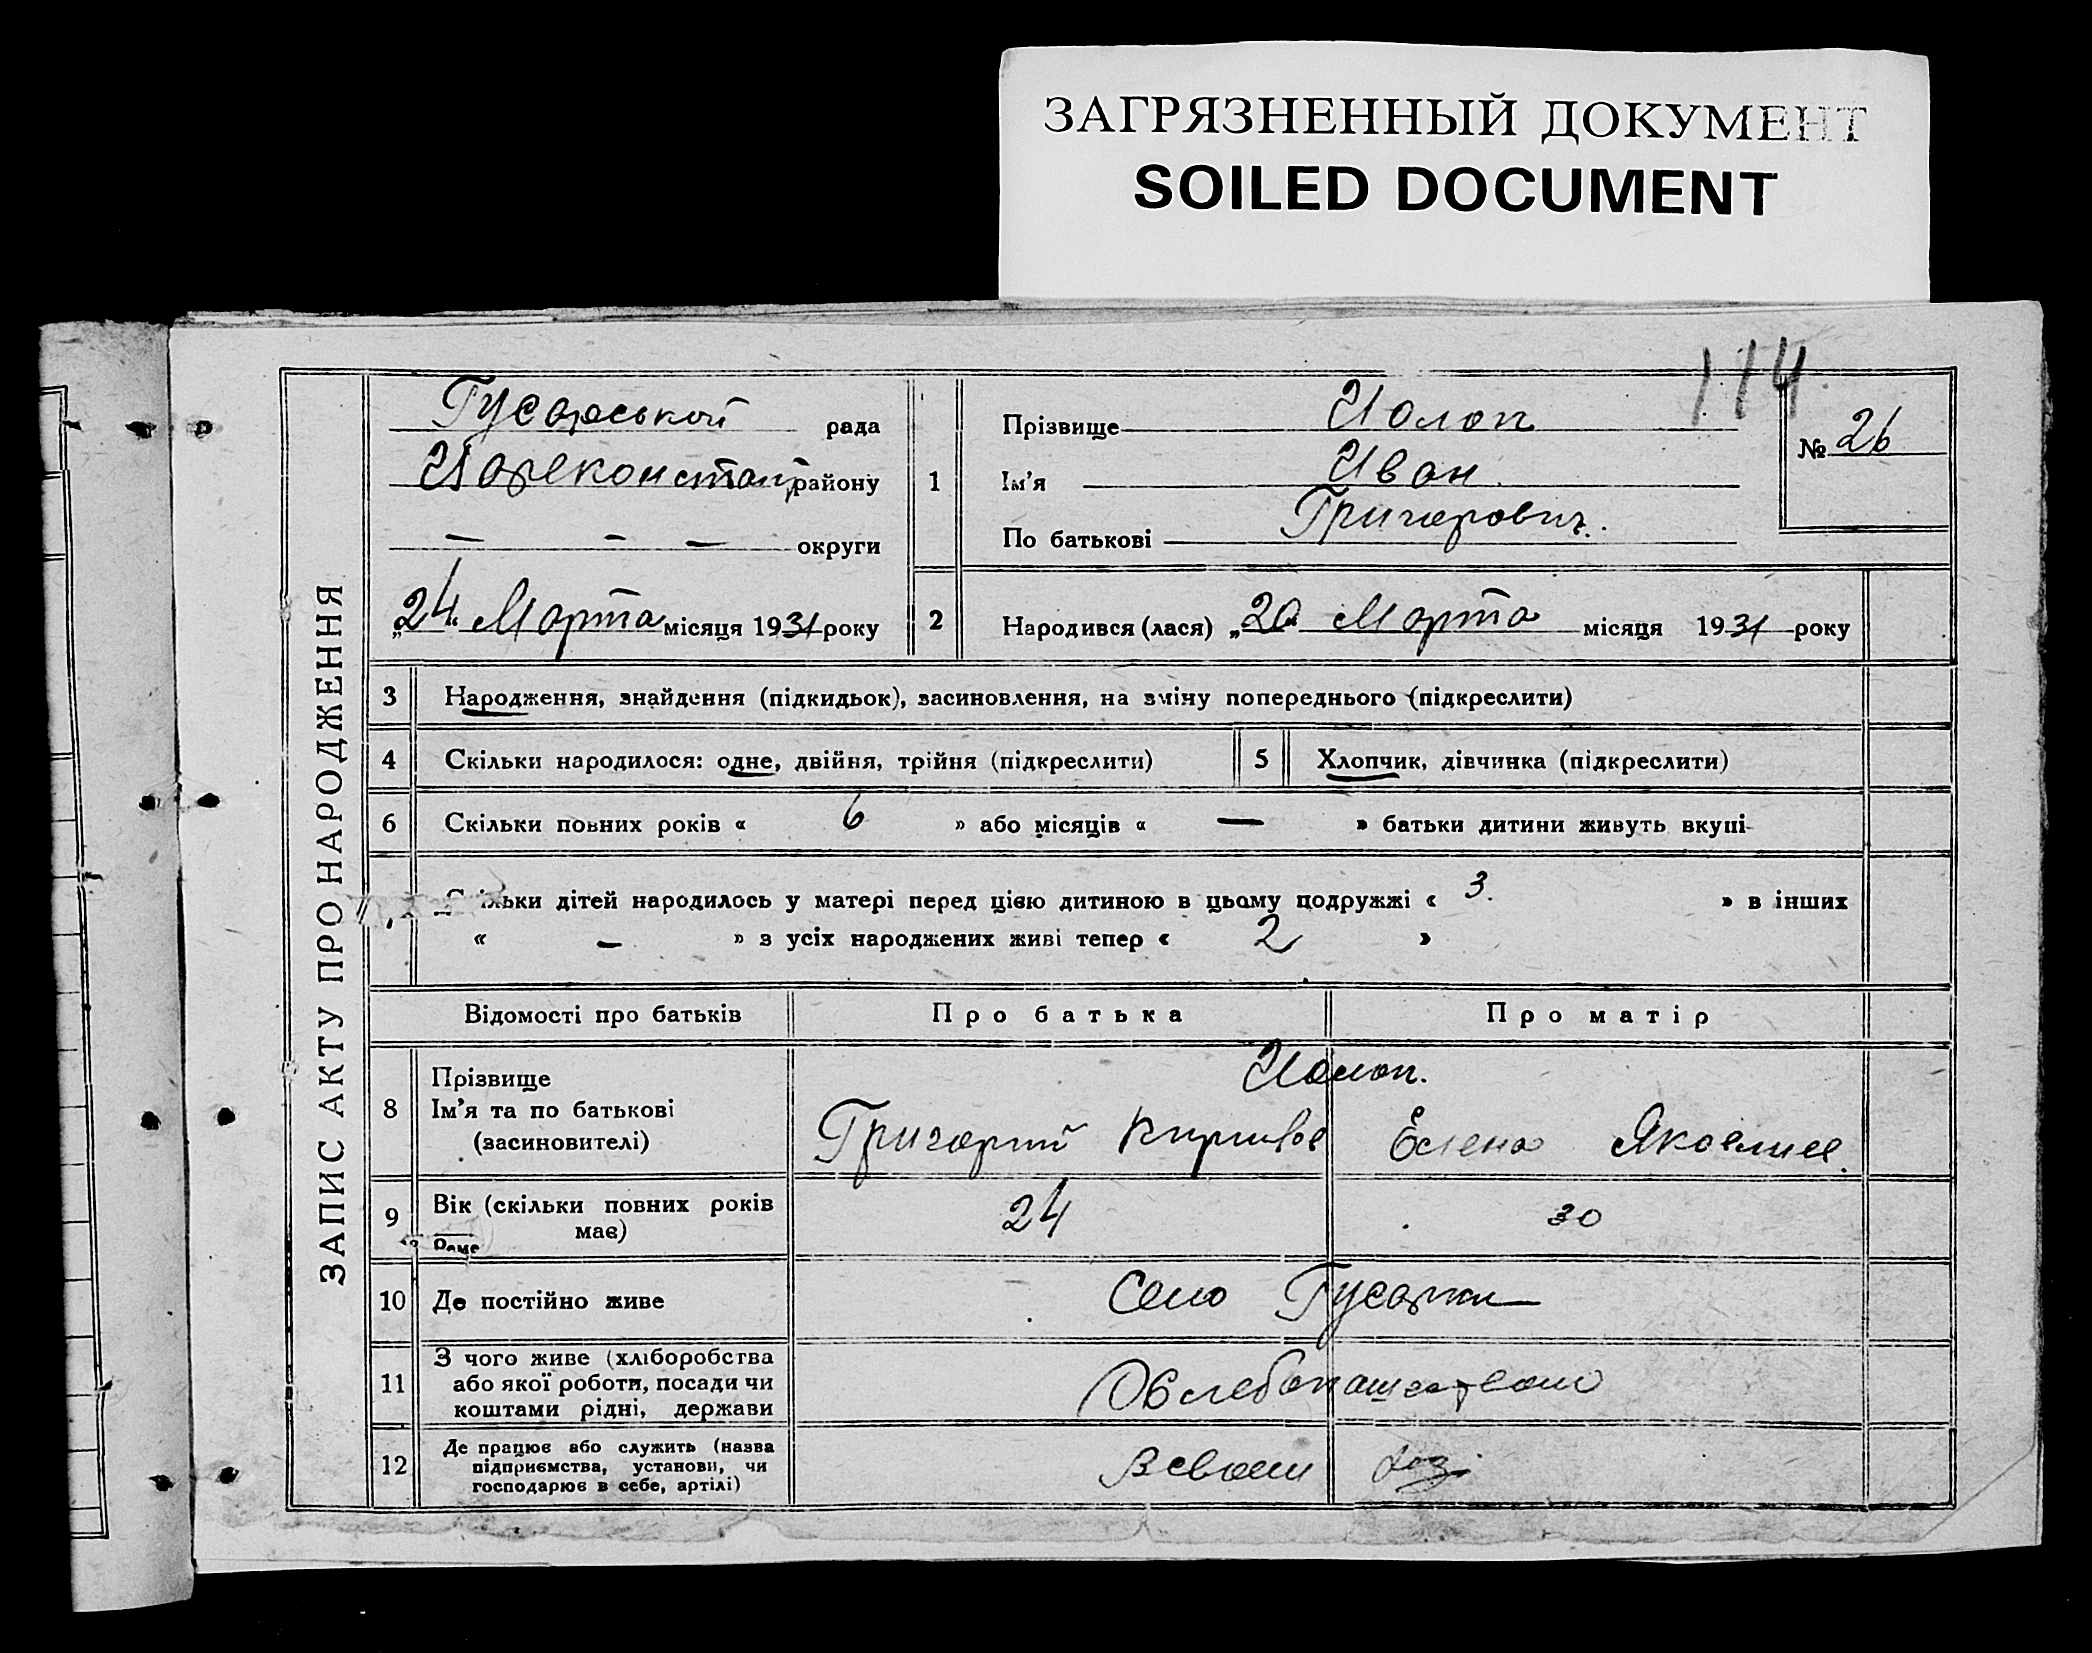 ЗАГРЯЗНЕННЫЙ ДОКУМЕНТ
SOILED DOCUMENT
114
ЗАПИС АКТУ ПРО НАРОДЖЕННЯ
Гусарської рада
району
— — — округи
„24“ Марта місяця 1931 року
1
Прізвище
Ім'я Иван
По батькові Григорович.
№ 26
2 Народився (лася) „20“ Марта місяця 1931 року
3 Народження, знайдення (підкидьок), засиновлення, на зміну попереднього (підкреслити)
4 Скільки народилося: одне, двійня, трійня (підкреслити)
5 Хлопчик, дівчинка (підкреслити)
6 Скільки повних років « 6 » або місяців « — » батьки дитини живуть вкупі
ільки дітей народилось у матері перед цією дитиною в цьому подружжі « 3. » в інших
« — » з усіх народжених живі тепер « 2 »
Відомості про батьків Про батька Про матір
8
Прізвище
Ім'я та по батькові
(засиновителі)
Григорий Елена
9 Вік (скільки повних років
має)
24 30
10 Де постійно живе Село Гусарка
11
З чого живе (хліборобства
або якої роботи, посади чи
коштами рідні, держави
12
Де працює або служить (назва
підприємства, установи, чи
господарює в себе, артілі)